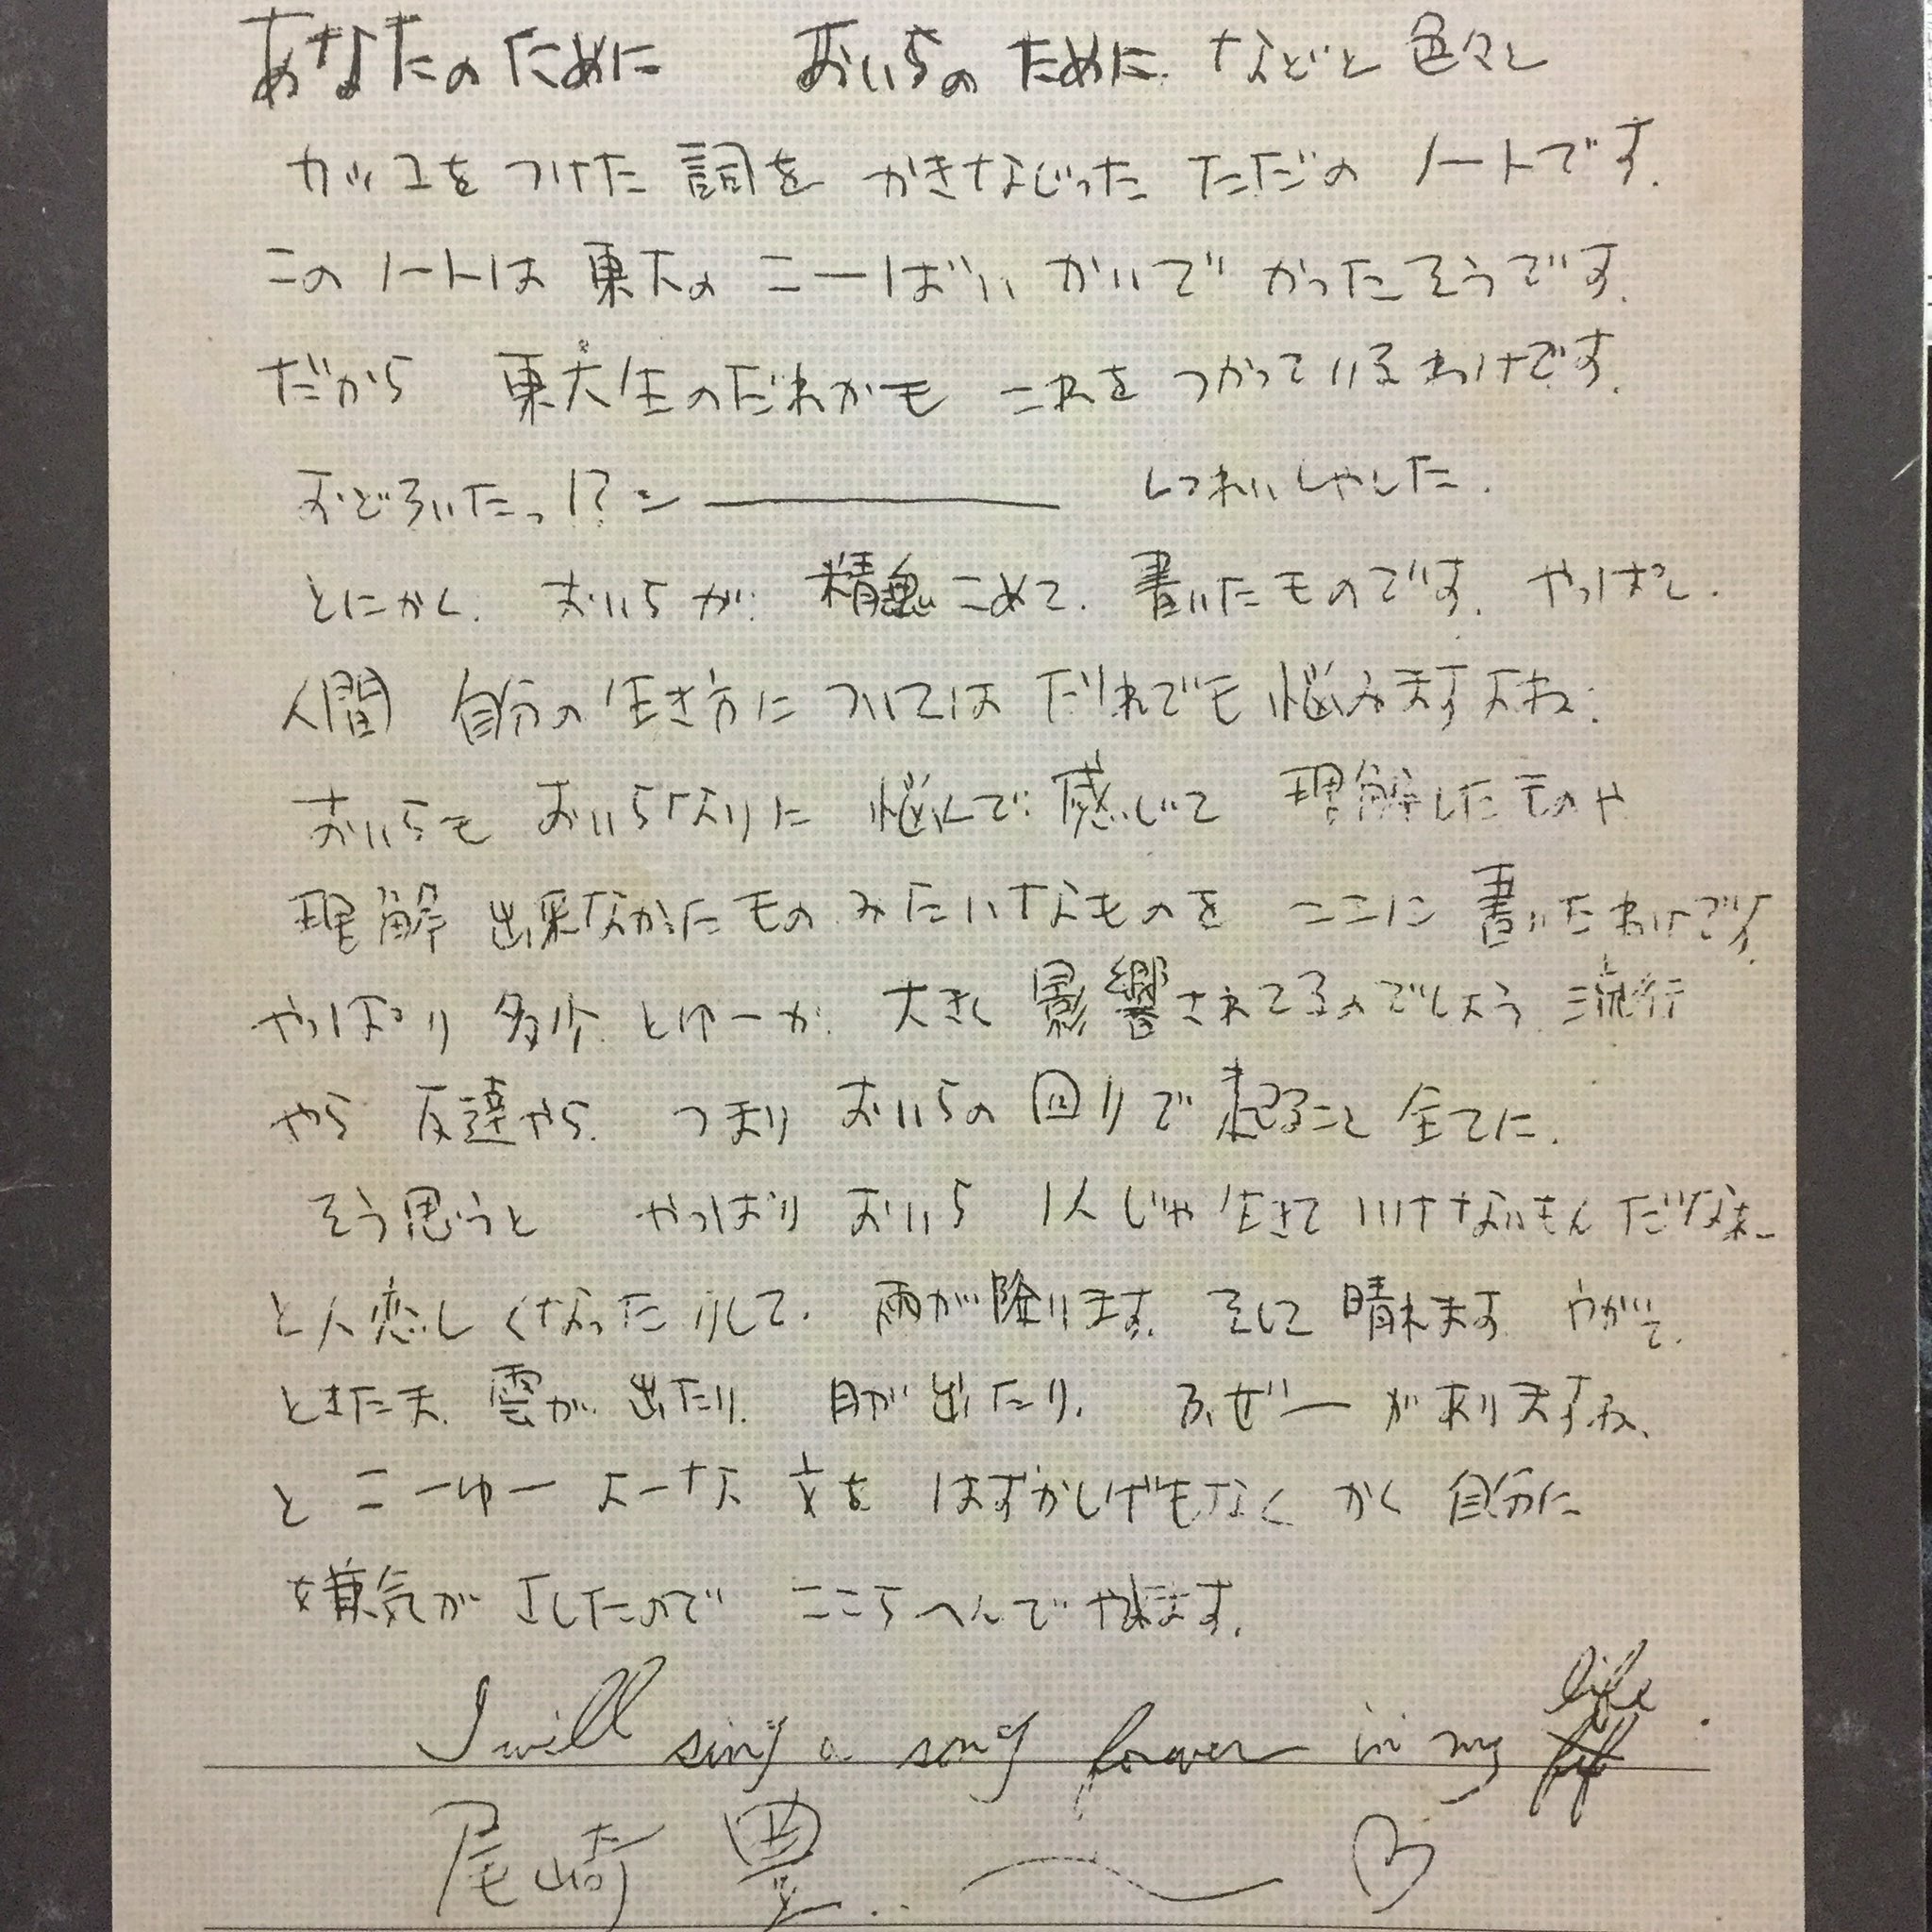 あなたのために おいらのために などと 色々と
カッコを つけた 詞を かきなじった ただの ノートです.
このノートは 東大の こーばい かいで かったそうです.
だから 東大生のだれかも これを つかっているわけです.
おどろいたっ!? ――― しつれいしやした.
とにかく. おいらが. 精魂こめて. 書いたものです. やっぱし.
人間 自分の 生き方に ついては だれでも 悩みますよね.
おいらも おいらなりに 悩んで 感じて 理解したものや
理解 出来なかったもの みたいなものを ここに 書いたわけです.
やっぱり 多少 とゆーか. 大きく 影響されてるのでしょう 流行
やら 友達やら. つまり おいらの 回りで 起ること 全てに.
そう思うと やっぱり おいら 1人じゃ 生きて いけないもんだなぁー
と人恋しくなったりして. 雨が 降ります. そして 晴れます やがて.
ときたま. 雲が 出たり. 月が 出たり. ふぜーが ありますね.
と こーゆーよーな 文を はずかしげもなく かく 自分に
嫌気が さしたので ここらへんで やめます.
I will sing a song forever in my life.
尾崎 豊.. 〜 ♡